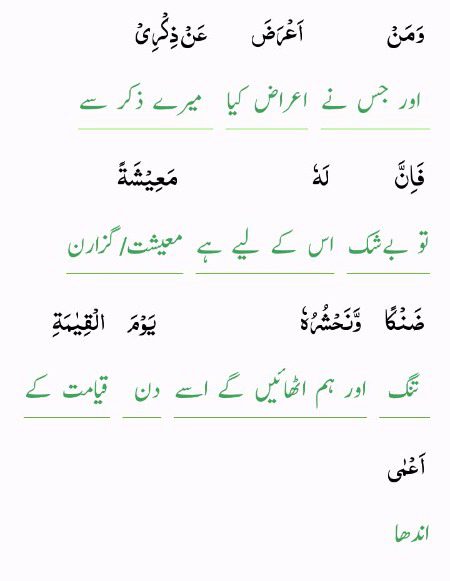 وَمَنْ اَعْرَضَ عَنْ ذِكْرِیْ
اور جس نے اعراض کیا میرے ذکر سے
فَاِنَّ لَهٗ مَعِیْشَةً
تو بے شک اس کے لیے ہے معیشت/گزارن
ضَنْكًا وَّنَحْشُرُهٗ یَوْمَ الْقِیٰمَةِ
تنگ اور ہم اٹھائیں گے اسے دن قیامت کے
اَعْمٰی
اندھا